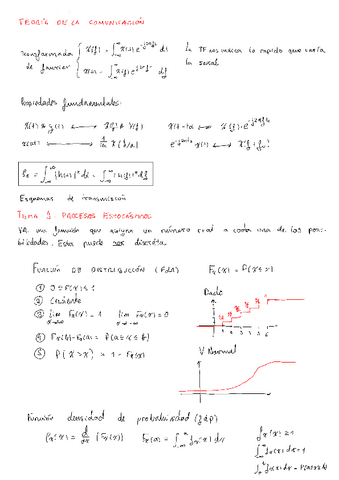 TEORÍA DE LA COMUNICACIÓN
Transformada de Fourier { X(f) = ∫_{-∞}^{∞} x(t) e^{-j2πft} dt
x(t) = ∫_{-∞}^{∞} X(f) e^{j2πft} df
La TF nos indica lo rápido que varía la señal
Propiedades fundamentales:
x(t) * y(t) ⟷ X(f) · Y(f)
x(at) ⟷ X(f/a)
∫_{-∞}^{∞} |x(t)|² dt = ∫_{-∞}^{∞} |X(f)|² df
Esquemas de transmisión
TEMA 1 PROCESOS ESTOCÁSTICOS
VA: una función que asigna un número real a cada una de las posi-
bilidades. Esta puede ser discreta
FUNCIÓN DE DISTRIBUCIÓN (FdD) Fx(x) = P(X ≤ x)
① 0 ≤ Fx(x) ≤ 1
② Creciente
③ lim Fx(x) = 1 lim Fx(x) = 0
④ Fx(b) - Fx(a) = P(a ≤ x ≤ b)
⑤ P(X > x) = 1 - Fx(x)
Dado
1 2 3 4 5 6
V Normal
Función densidad de probabilidad (fdp)
fx(x) = d/dx (Fx(x))